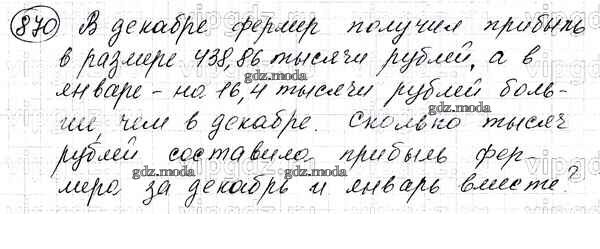 870 В декабре фермер получил прибыль
в размере 438,86 тысячи рублей, а в
январе - на 16,4 тысячи рублей боль-
ши, чем в декабре. Сколько тысяч
рублей составила прибыль фер-
мера за декабрь и январь вместе?
gdz.moda
gdz.moda
gdz.moda
gdz.moda
gdz.moda
gdz.moda